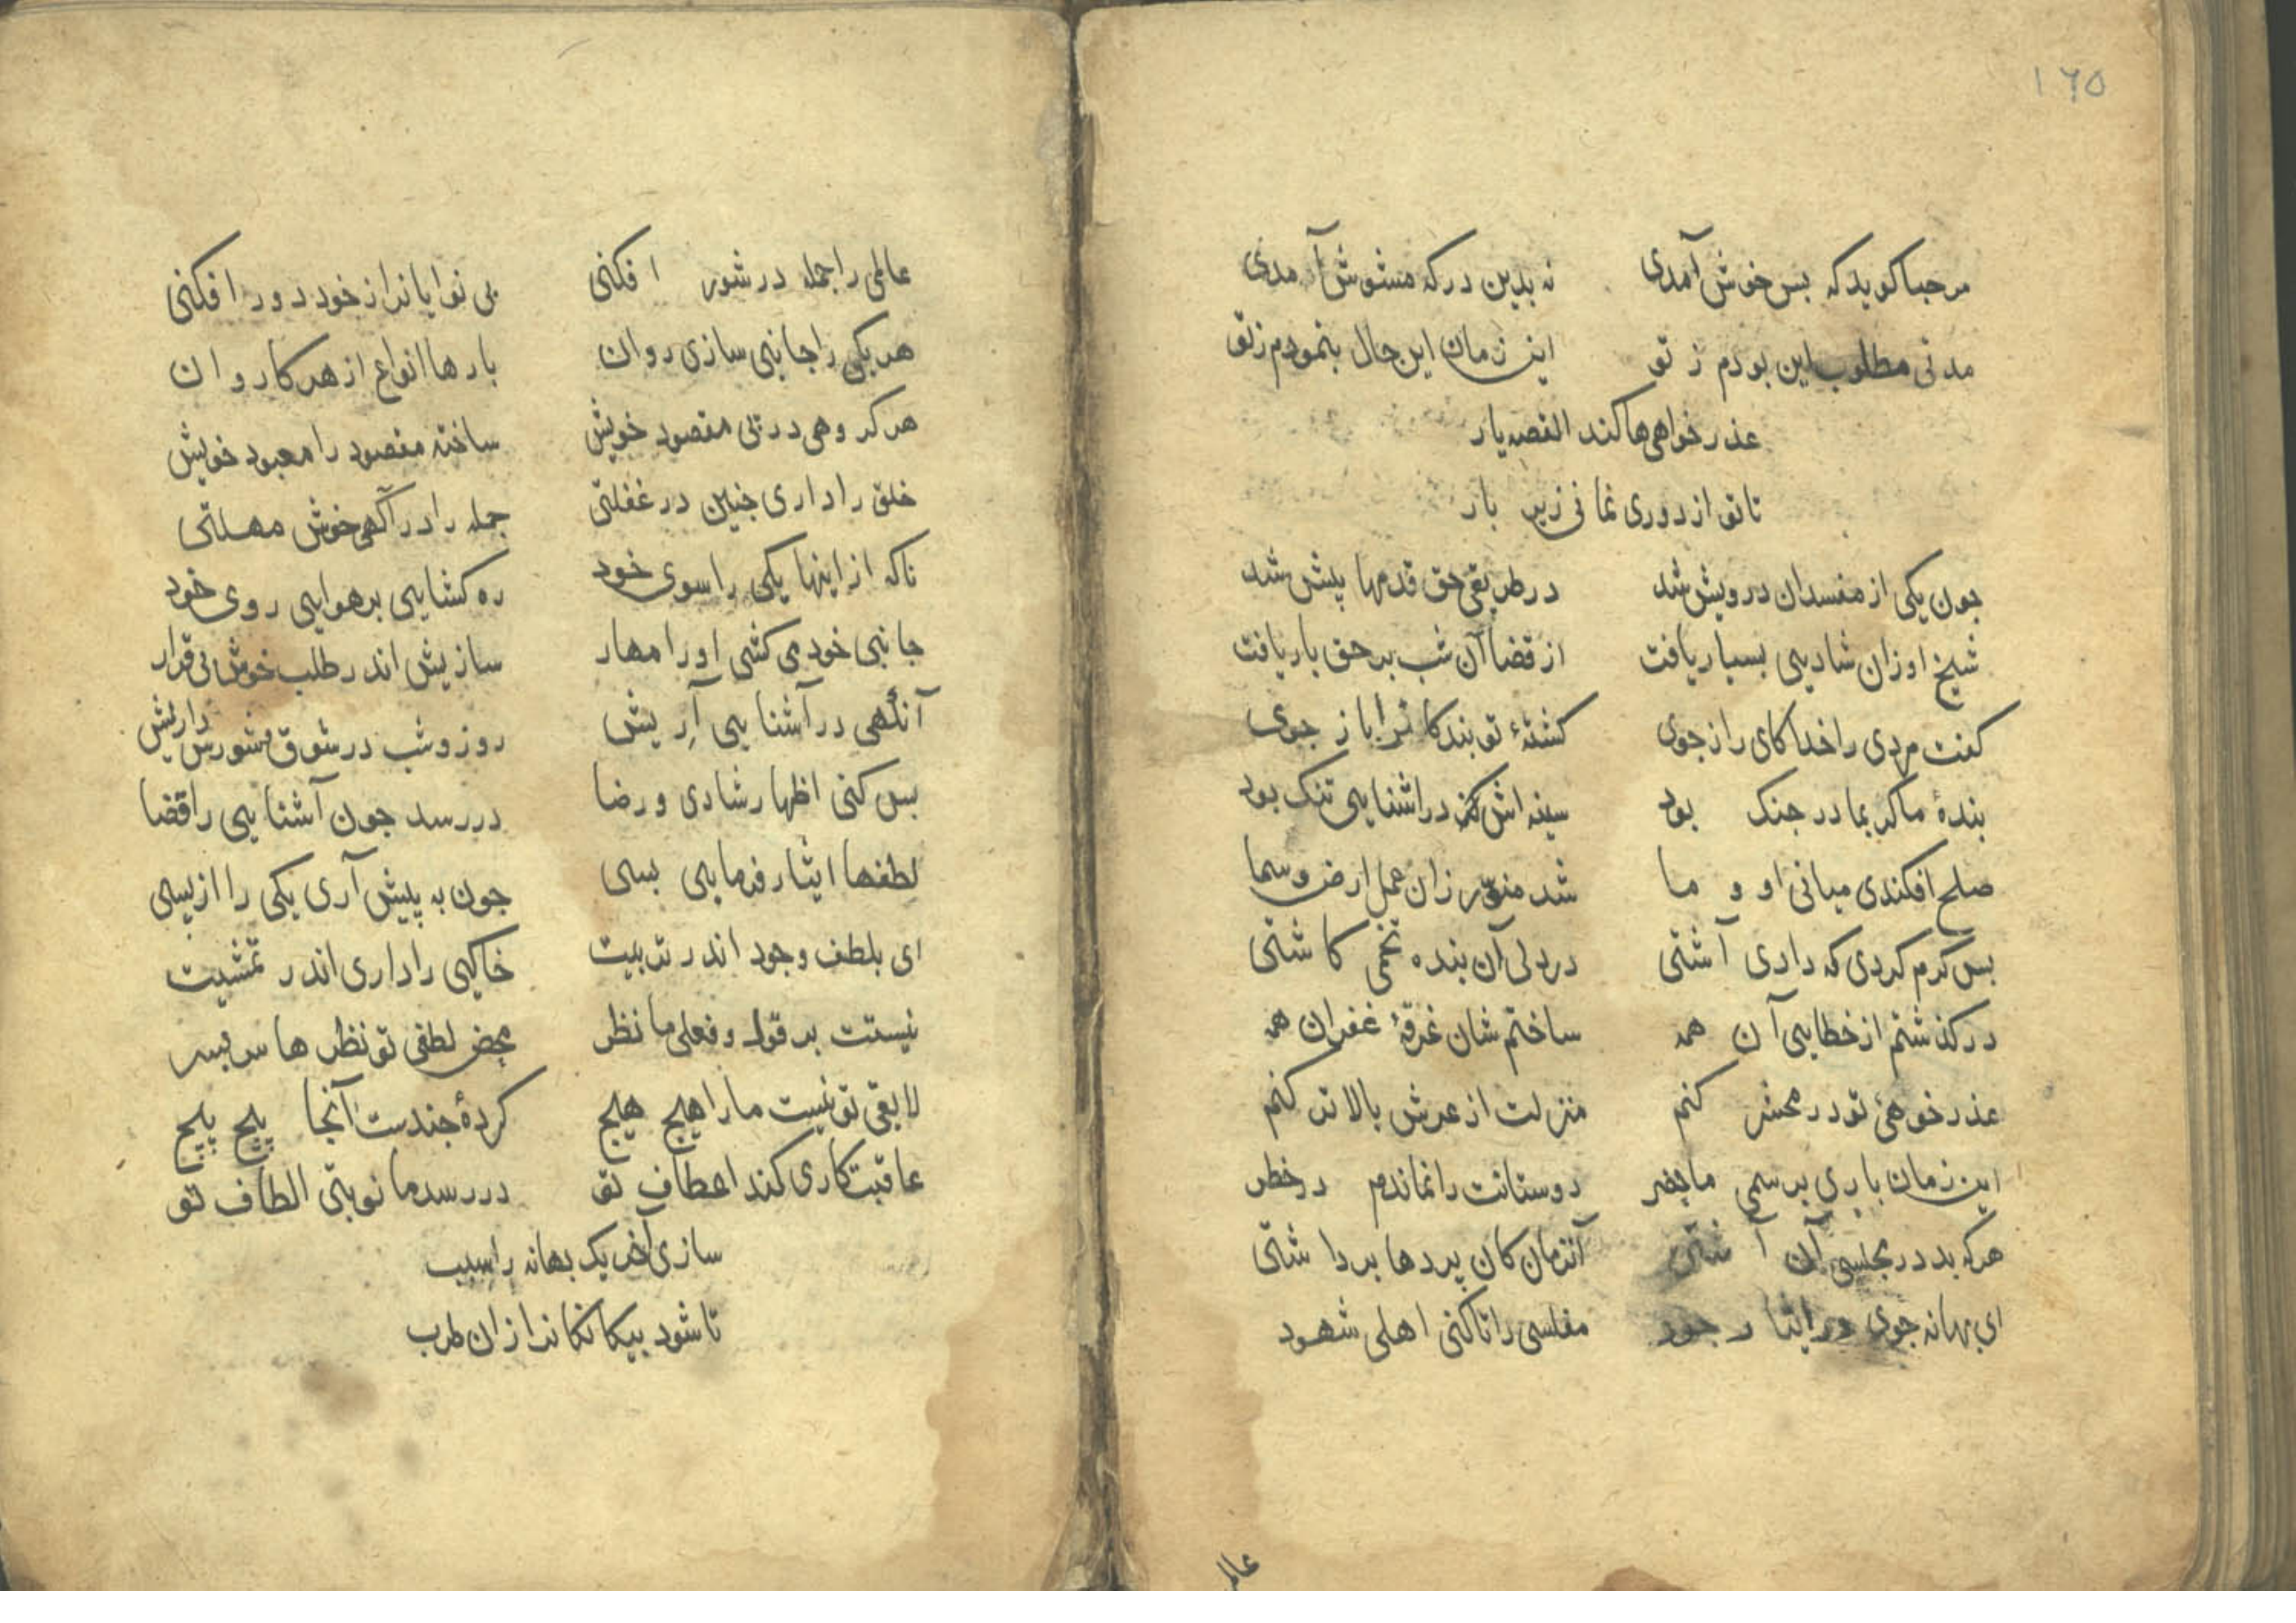 ۱۶۵
مرحبا کوید که بس خوش آمدی نه بدین درکه مشوش آمدی
مدتی مطلوب این بودم ز تو این زمان این حال بنمودم زتو
عذر خواهی ها کند القصه یار
تا تو از دوری نمانی زیر بار
جون یکی از مفسدان درویش شد در طریقی حق قدمها پیش شد
شیخ او زان شادیی بسیار یافت از قضا آن شب بر حق بار یافت
کفت مردی را خدا کای راز جوی کشتهٔ تو بندکانرا باز جوی
بندهٔ ما کر بما در جنک بود سینه اش در اشنایی تنک بود
صلح افکندی میانی او و ما شد منوّر زان عمل ارض و سما
بس کرم کردی که دادی آشتی در دلی آن بنده تخمی کاشتی
درکذشتم از خطایی آن همه ساختم شان غرقهٔ غفران همه
عذر خوهیٔ تو در محشر کنم منزلت از عرش بالاتر کنم
این زمان باری برسمی ماحضر دوستانت را نماندم در خطر
هرکه بد در مجلسی آن آشتی آنزمان کان پردها برداشتی
ای بهانه جوی در ایثار جود مفلسی را تا کنی اهلی شهود
عالم
عالمی را جمله در شور افکنی بی نوایانرا از خود دور افکنی
هر یکی را جانبی سازی روان بارها انواع از هر کاروان
هر کروهی در پی مقصود خویش ساخته مقصود را معبود خویش
خلق را داری جنین در غفلتی جمله را در آکهی خوش مهلتی
تاکه از اینها یکی را سوی خود ره کشایی بر هوایی روی خود
جانبی خود می کشی او را مهار سازیش اندر طلب خوش بی قرار
آنگهی در آشنایی آرِیش روز و شب در شوق و شورش داریش
بس کنی اظهار شادی و رضا دررسد جون آشنایی را قضا
لطفها ایثار فرمایی بسی جون به پیش آری یکی را از پسی
ای بلطف وجود اندر تربیت خاکیی را داری اندر تمشیت
نیستت بر قول و فعلی ما نظر محض لطفی تو نظرها سربسر
لایقی تو نیست ما را هیج هیج کردهٔ جندست آنجا پیج پیج
عاقبت کاری کند اعطاف تو دررسد ما نوبتی الطاف تو
سازی آخر یک بهانه را سبب
تا شود بیکانکانرا زان طرب